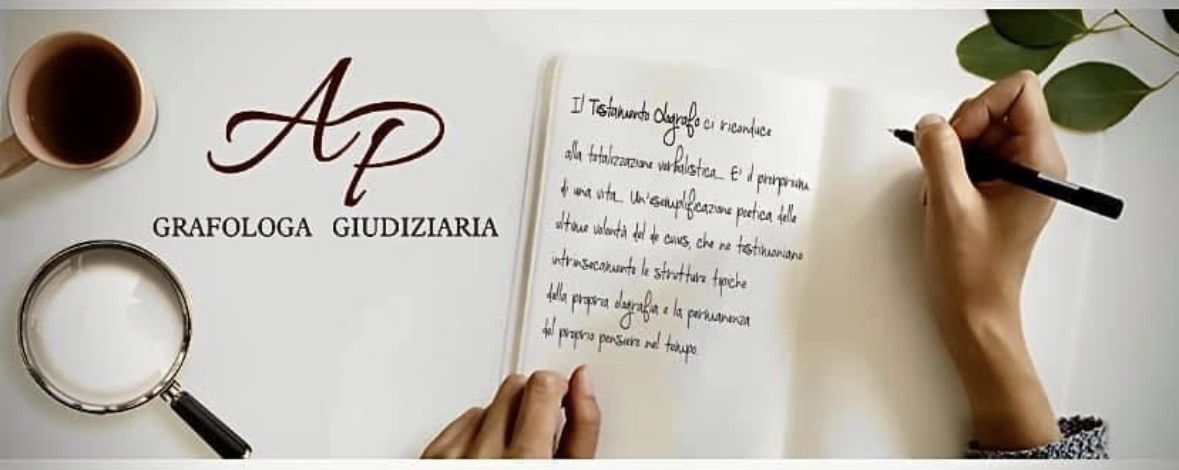 AP
GRAFOLOGA GIUDIZIARIA
Il Testamento Olografo ci riconduce
alla totalizzazione verbalistica... E' il proprium
di una vita... Un'esemplificazione poetica delle
ultime volontà del de cuius, che ne testimoniano
intrinsecamente le strutture tipiche
della propria olografia e la permanenza
del proprio pensiero nel tempo.